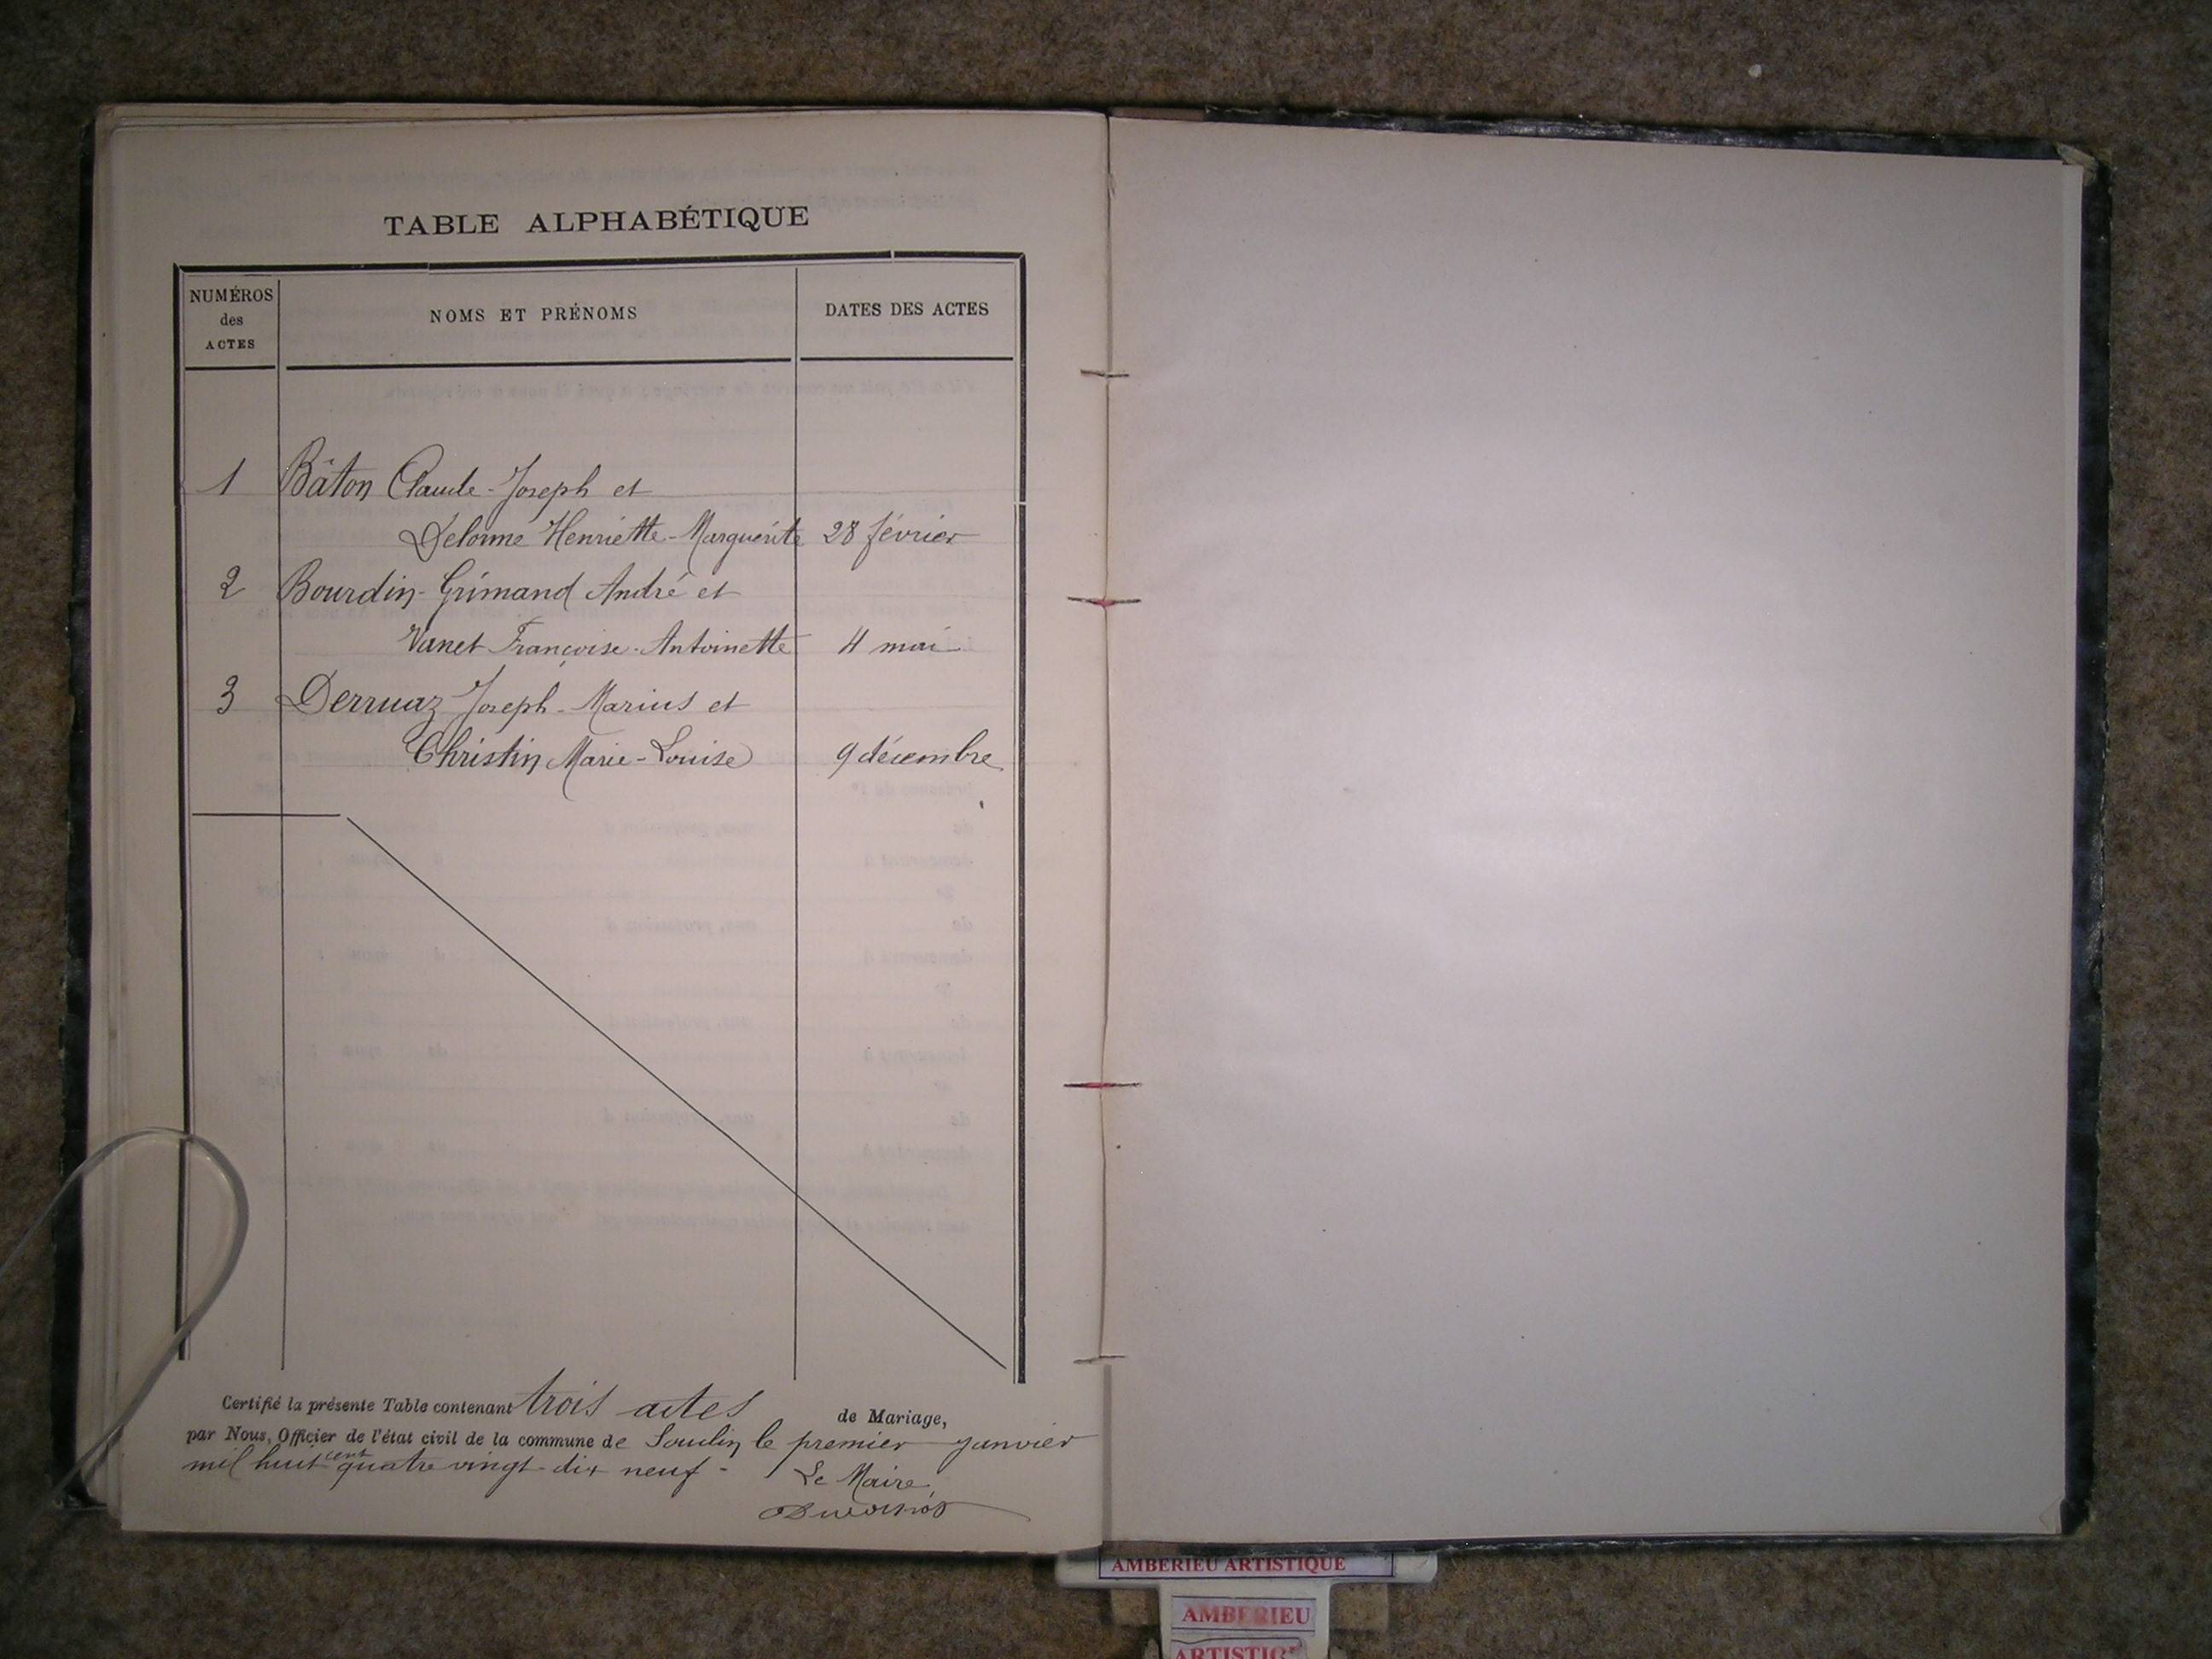 TABLE ALPHABÉTIQUE
NUMÉROS
des
ACTES
NOMS ET PRÉNOMS
DATES DES ACTES
1 Bâton Claude-Joseph et
Delorme Henriette-Marguerite 28 février
2 Bourdin-Grimand André et
Vanet Françoise-Antoinette 4 mai
3 Derruaz Joseph-Marius et
Christin Marie-Louise 9 décembre
Certifié la présente Table contenant trois actes de Mariage,
par Nous, Officier de l'état civil de la commune de Souclin le premier janvier
mil huit cent quatre vingt-dix neuf -
Le Maire,
AMBERIEU ARTISTIQUE
AMBERIEU